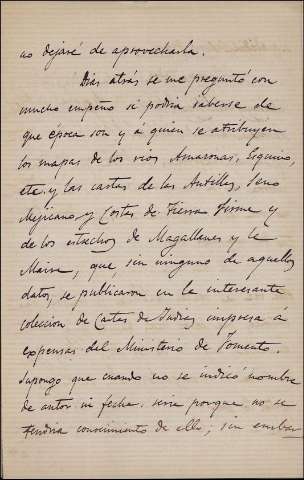 no dejaré de aprovecharla.
Dias atrás se me preguntó con
mucho empeño si podria saberse de
que época son y á quien se atribuyen
los mapas de los rios Amazonas, Esquivo,
etc. y las cartas de las Antillas, Seno
Mejicano y Costas de Tierra firme y
de los estrechos de Magallanes y Le
Maire, que, sin ninguno de aquellos
datos, se publicaron en la interesante
coleccion de Cartas de Indias impresa á
expensas del Ministerio de Fomento.
Supongo que cuando no se indicó nombre
de autor ni fecha seria porque no se
tendria conocimiento de ello; sin embar